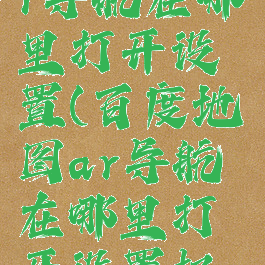 r导航在哪
里打开设
置(百度地
图ar导航
在哪里打
开设置好